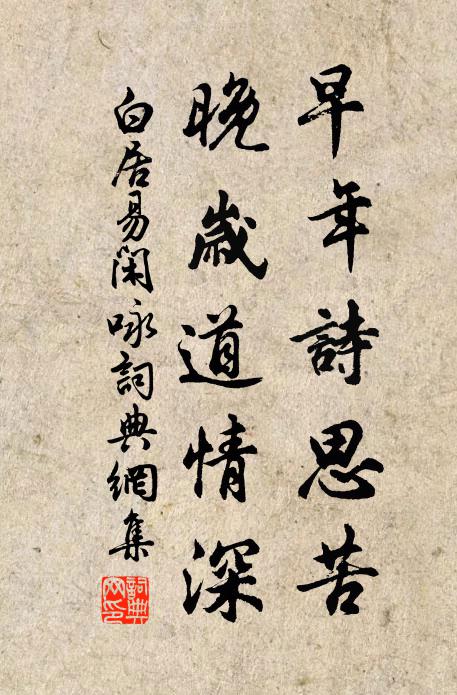 早年詩思苦
晚歲道情深
白居易閑咏詞典網集
詞典網印